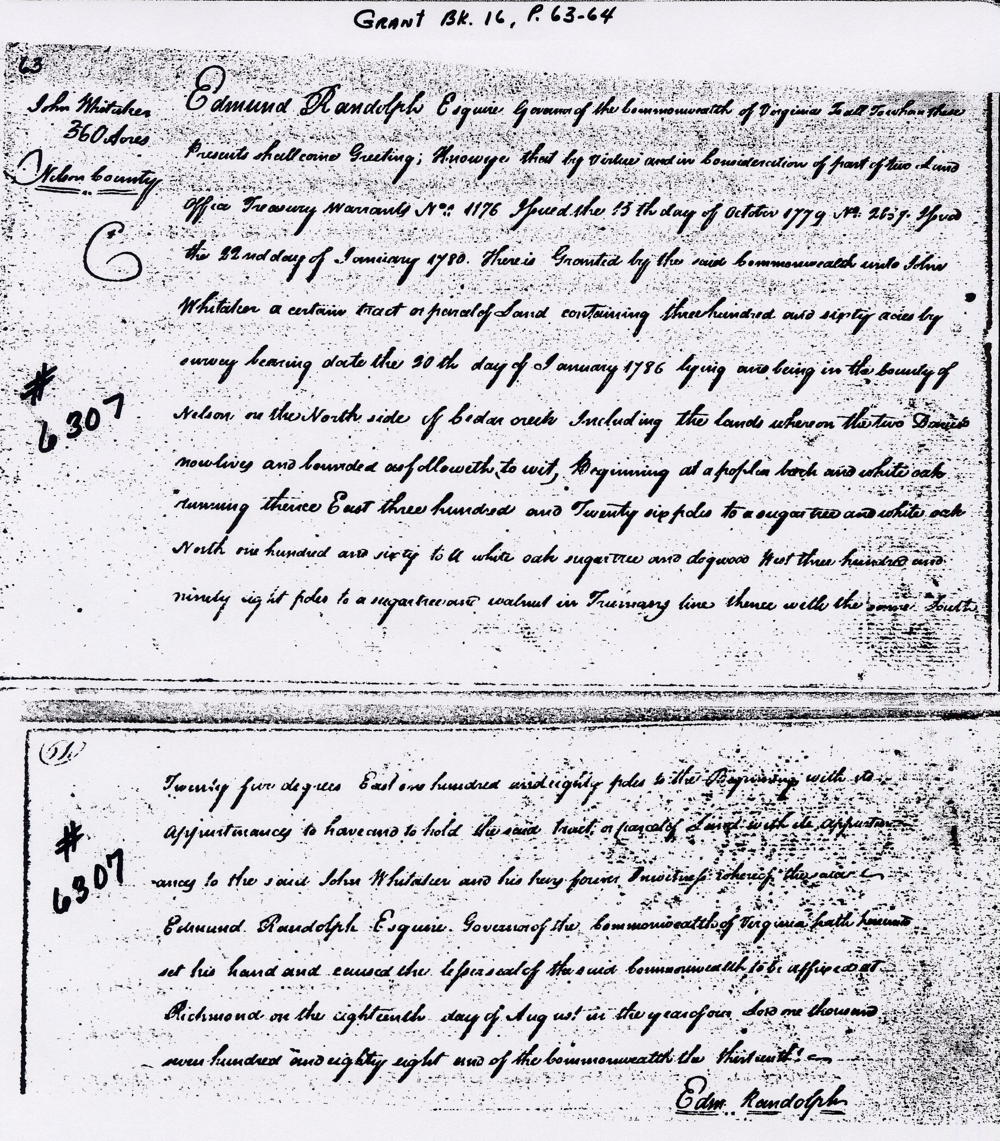 GRANT BK. 16, P. 63-64
63
John Whitaker
360 Acres
Nelson County
#
6307
Edmund Randolph Esquire Governor of the Commonwealth of Virginia To all To whom these
Presents shall come Greeting; Know ye that by virtue and in Consideration of part of two Land
Office Treasury Warrants No.: 1176 Issued the 15th day of October 1779 No. Issued
the 22nd day of January 1780. There is Granted by the said Commonwealth unto John
Whitaker a certain tract or parcel of Land containing three hundred and sixty acres by
survey bearing date the 20th day of January 1786 lying and being in the County of
Nelson on the North side of Cedar creek Including the lands whereon the two
now lives and bounded as followeth, to wit, Beginning at a poplar beech and white oak
running thence East three hundred and Twenty six poles to a sugartree and white oak
North one hundred and sixty to a white oak sugartree and dogwood West three hundred and
ninety eight poles to a sugartree and walnut in line thence with the same South
#
6307
Twenty five degrees East one hundred and eighty poles to the Beginning with its
Appurtinances to have and to hold the said tract or parcel of Land with its Appurtin
ances to the said John Whitaker and his heirs forever In witness whereof the said
Edmund Randolph Esquire. Governor of the Commonwealth of Virginia hath hereunto
set his hand and caused the lesser seal of the said Commonwealth to be affixed at
Richmond on the eighteenth day of August in the year of our Lord one thousand
seven hundred and eighty eight and of the Commonwealth the thirteenth.
Edm. Randolph